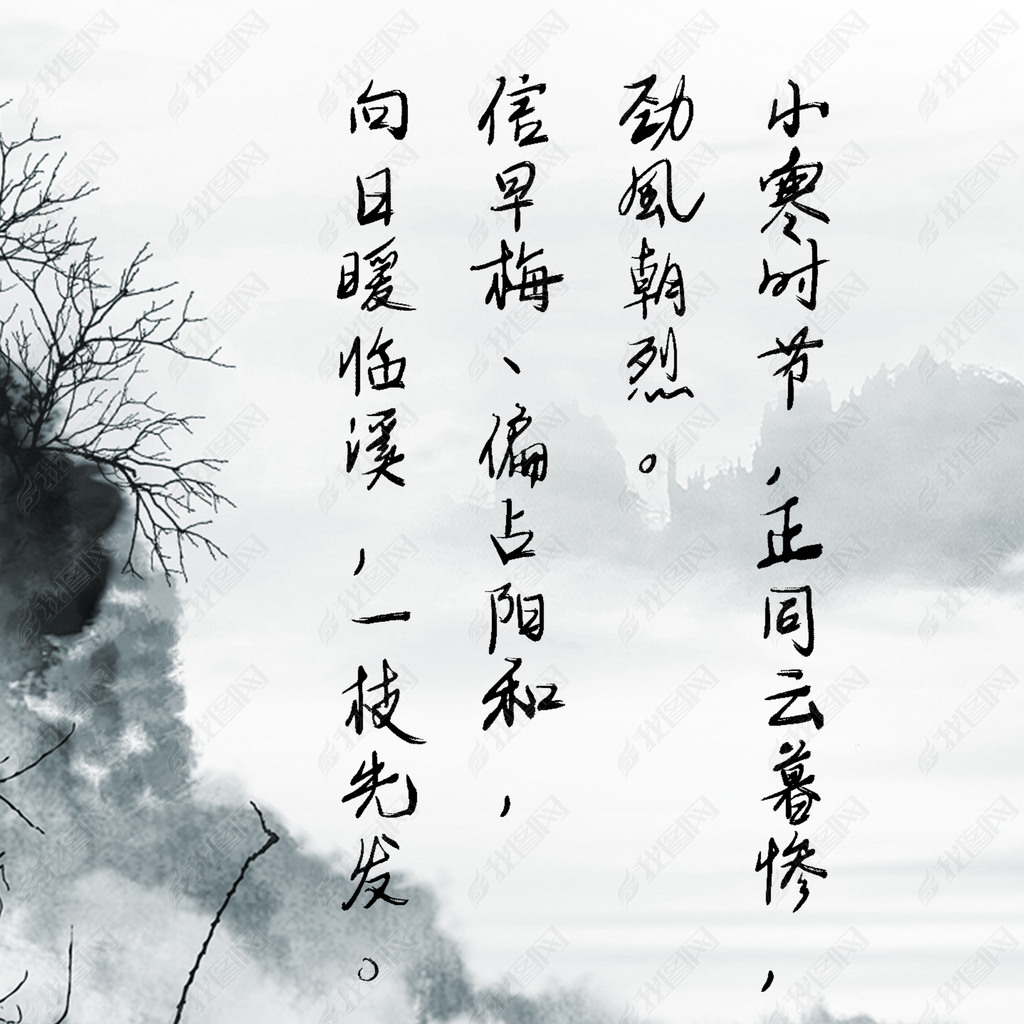 小寒时节,正同云暮惨,
劲風朝烈。
信早梅、偏占阳和,
向日暖临溪,一枝先发。